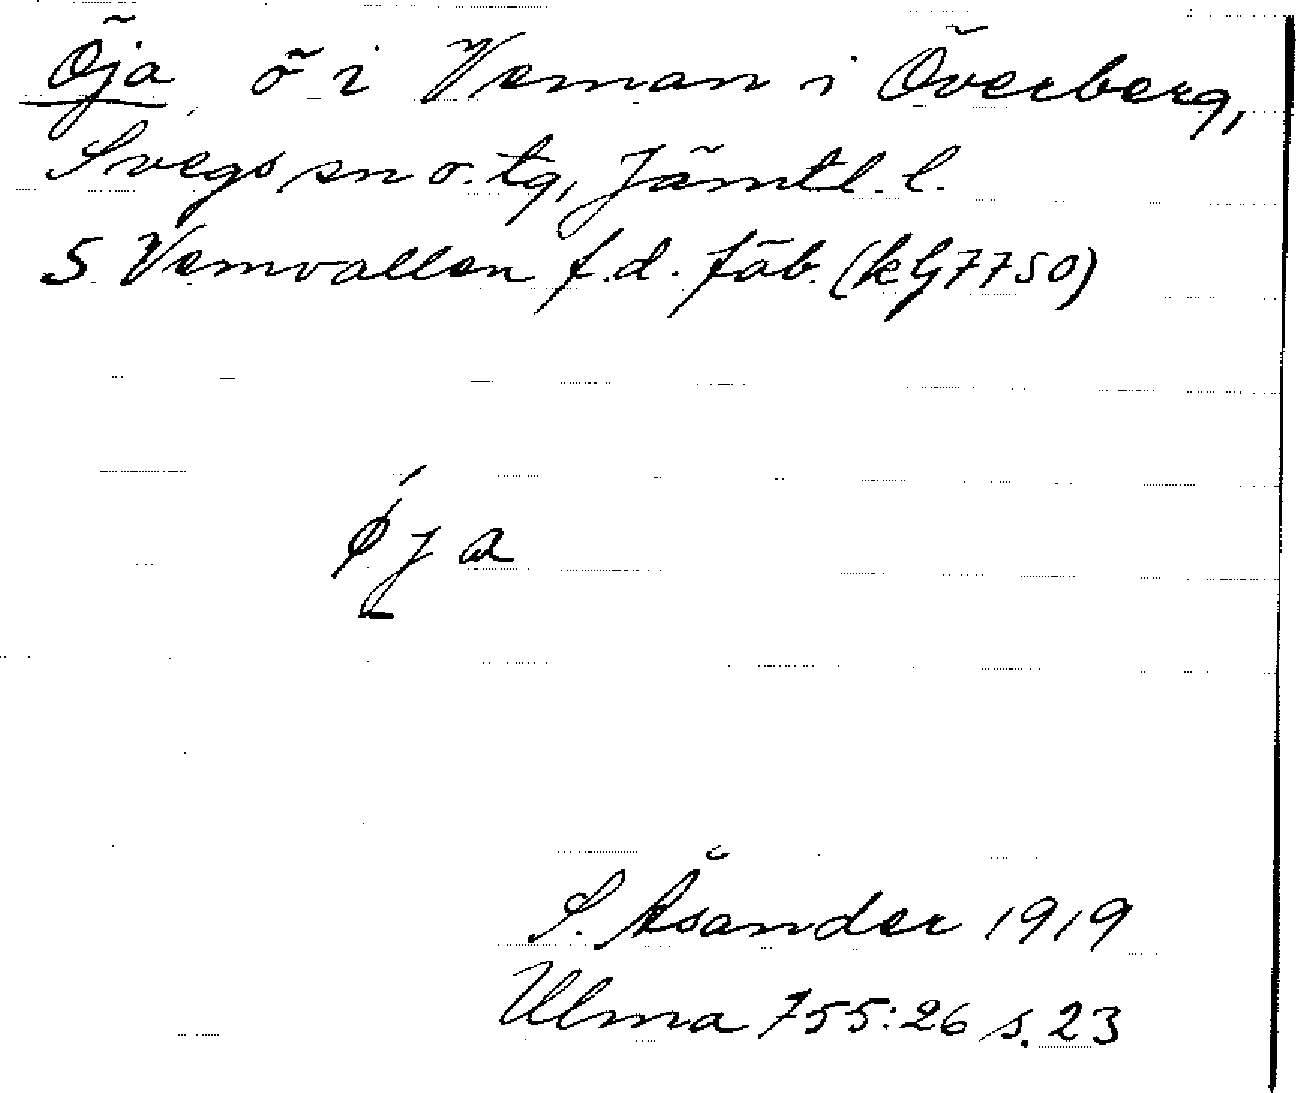 Öja ö i Veman i Överberg,
Svegs sn o. tg, Jämtl. l.
S Vemvallen f.d. fäb. (kG7750)
ǿja
S. Åsander 1919
Ulma 755:26 s. 23